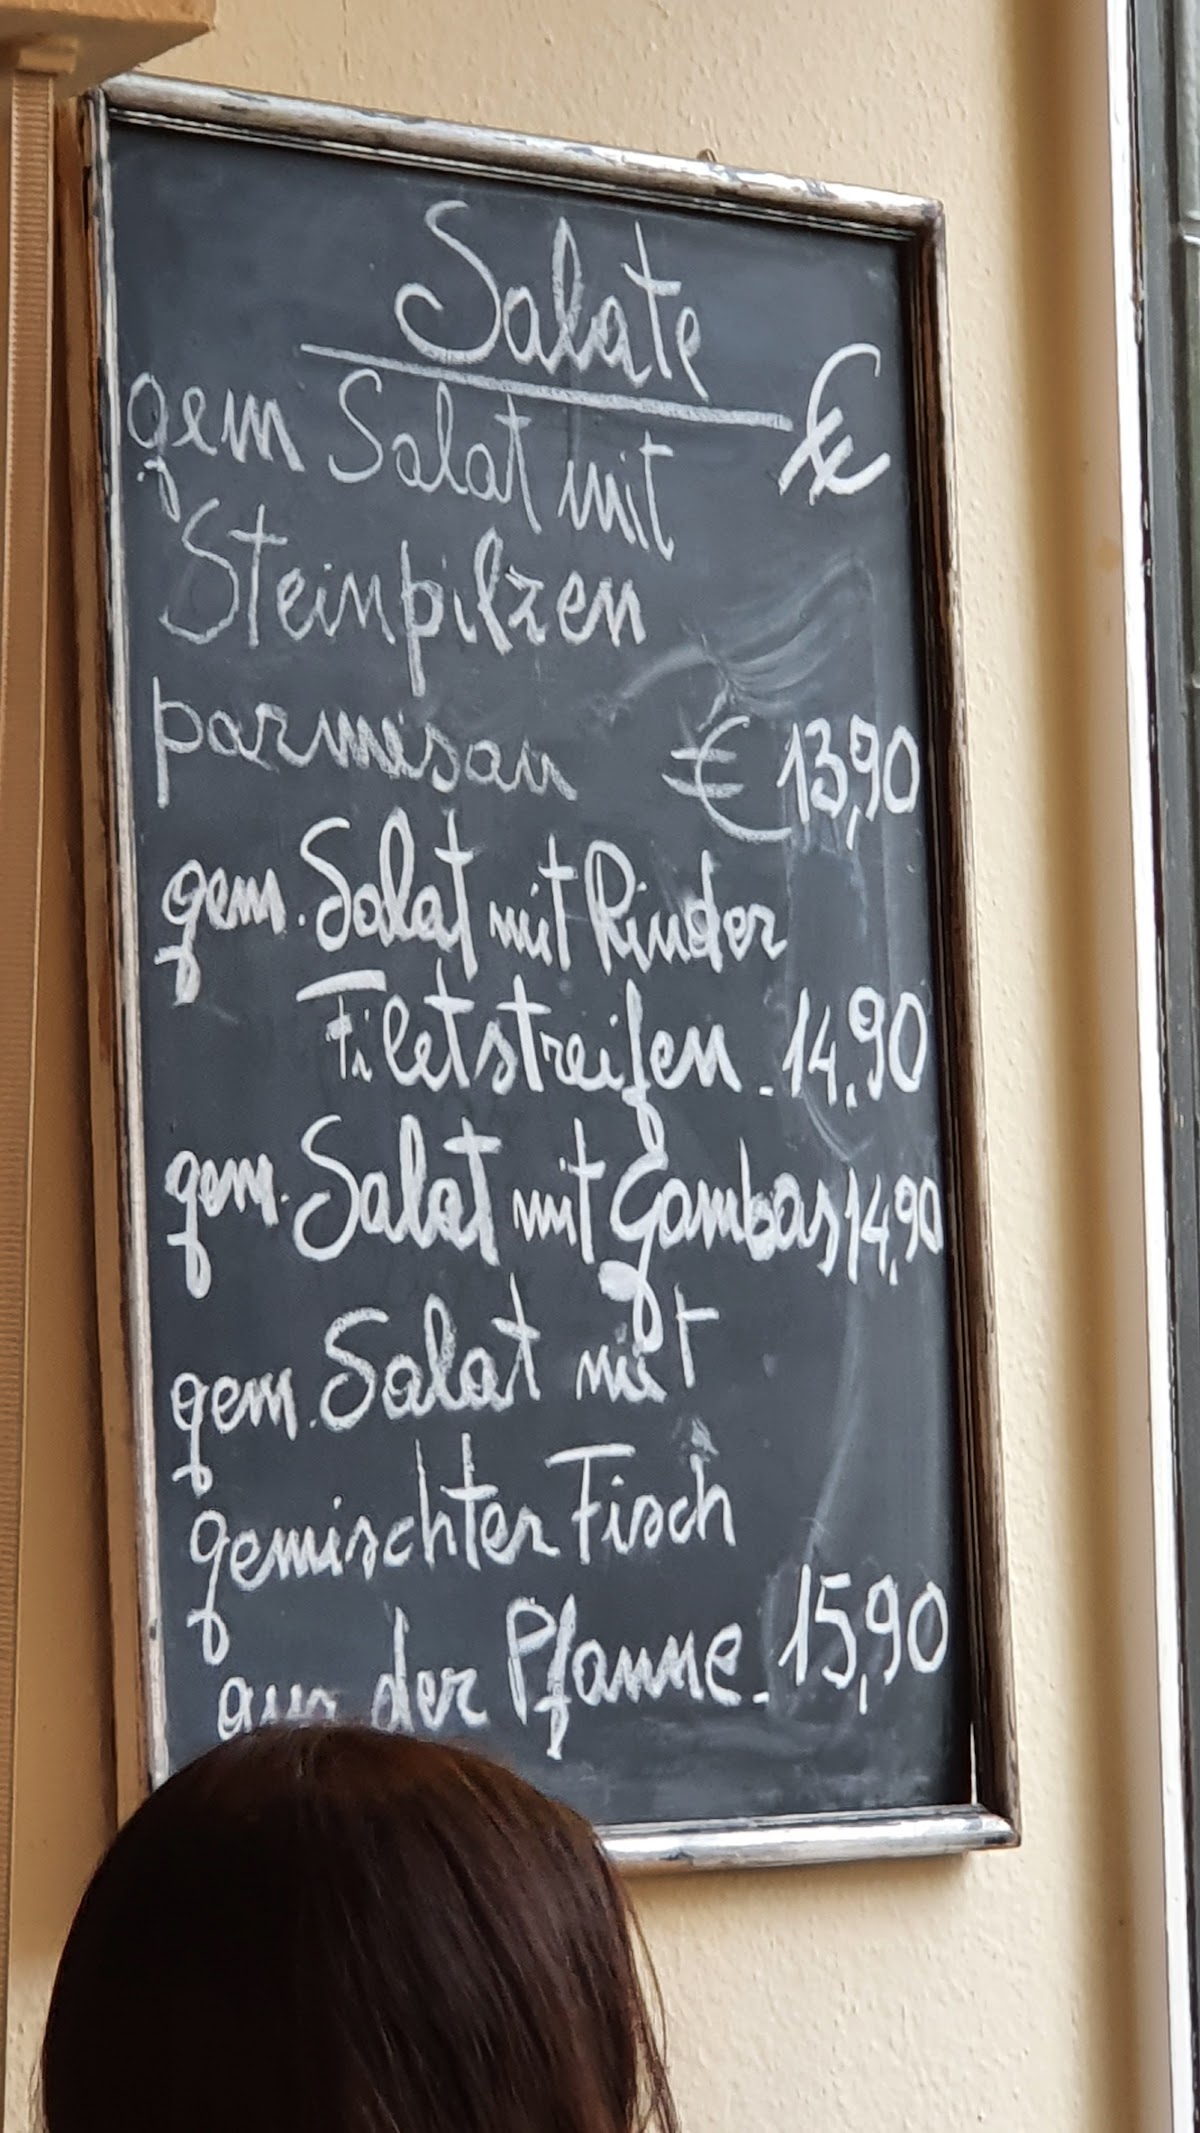 Salate
€
gem Salat mit
Steinpilzen
parmesan € 13,90
gem. Salat mit Rinder
Filetstreifen - 14,90
gem. Salat mit Gambas 14,90
gem. Salat mit
gemischter Fisch
aus der Pfanne - 15,90